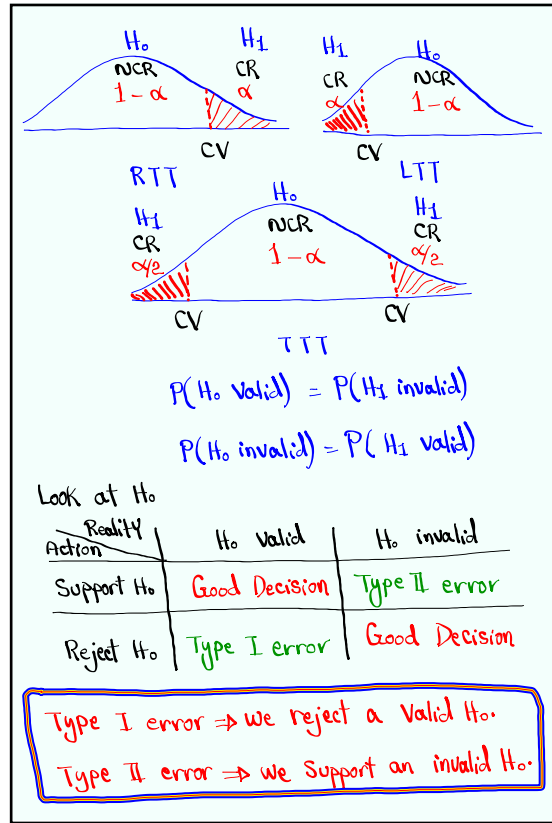 H₀ H1 H1 H₀
NCR CR CR NCR
1-α α α 1-α
CV CV
RTT LTT
H₀
H1 NCR H1
CR 1-α CR
α/2 α/2
CV CV
TTT
P(H₀ Valid) = P(H1 invalid)
P(H₀ invalid) = P(H1 Valid)
Look at H₀
Reality H₀ Valid H₀ invalid
Action
Support H₀ Good Decision Type II error
Reject H₀ Type I error Good Decision
Type I error ⇒ We reject a Valid H₀.
Type II error ⇒ we Support an invalid H₀.